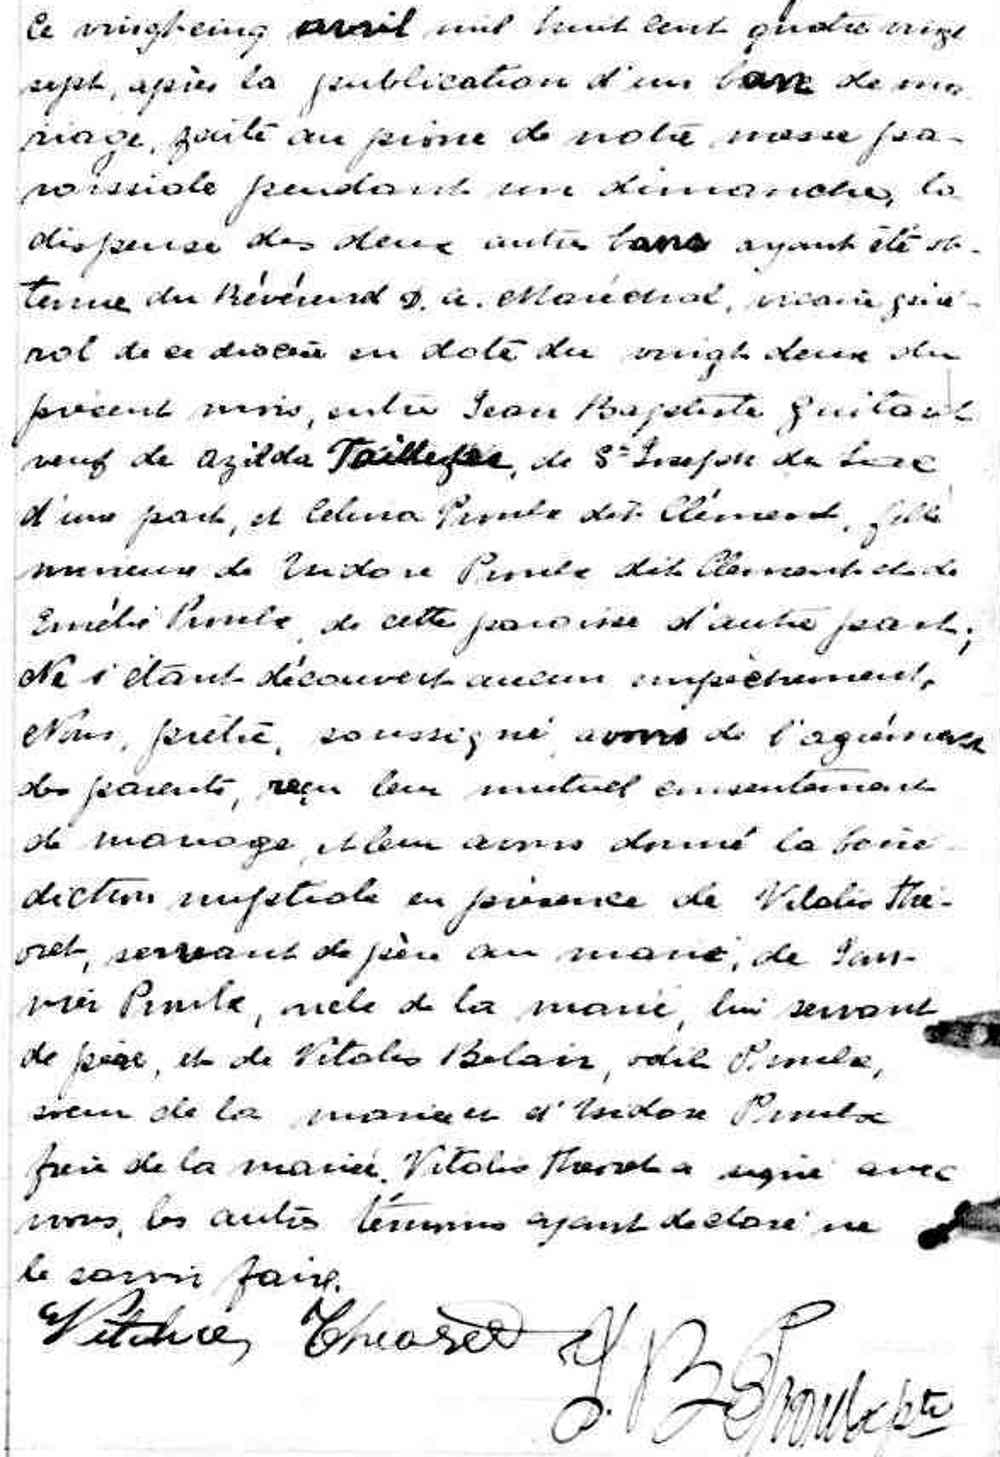 Ce vingt cinq avril mil huit cent quatre vingt
sept, après la publication d'un banc de ma-
riage, faite au prône de notre messe pa-
roissiale pendant un dimanche, la
dispense des deux autres bans ayant été ob-
tenue du Révérend D. a. Maréchal, vicaire géné-
ral de ce diocèse en date du vingt deux du
présent mois, entre Jean Baptiste Guitard
veuf de Azilda Taillefer, de St Joseph du Lac
d'une part, et Celina Proulx dit Clément, fille
mineure de Isidore Proulx dit Clément et de
Emélie Proulx, de cette paroisse d'autre part;
Ne s'étant découvert aucun empêchement,
Nous, prêtre, soussigné avons de l'agrément
des parents, reçu leur mutuel consentement
de mariage et leur avons donné la béné-
diction nuptiale en présence de Vitalis Thé-
oret, servant de père au marié, de Jan-
vier Proulx, oncle de la marié, lui servant
de père, et de Vitalis Belair, odile Proulx,
soeur de la mariée et d'Isidore Proulx
frère de la mariée. Vitalis Theoret a signé avec
nous, les autres témoins ayant déclaré ne
le savoir faire.
Theoret J. B. Proulx ptre